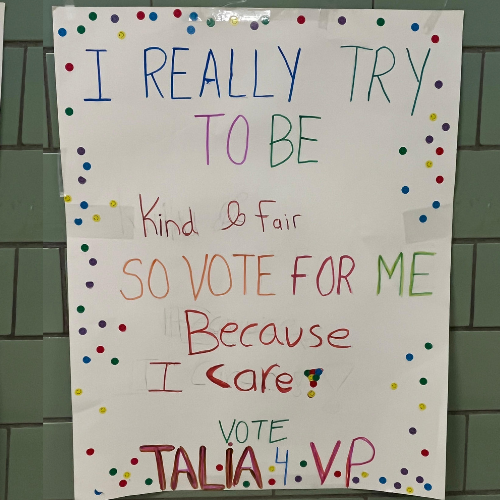 I REALLY TRY
TO BE
Kind & Fair
SO VOTE FOR ME
Because
I Care
VOTE
TALIA 4 V.P